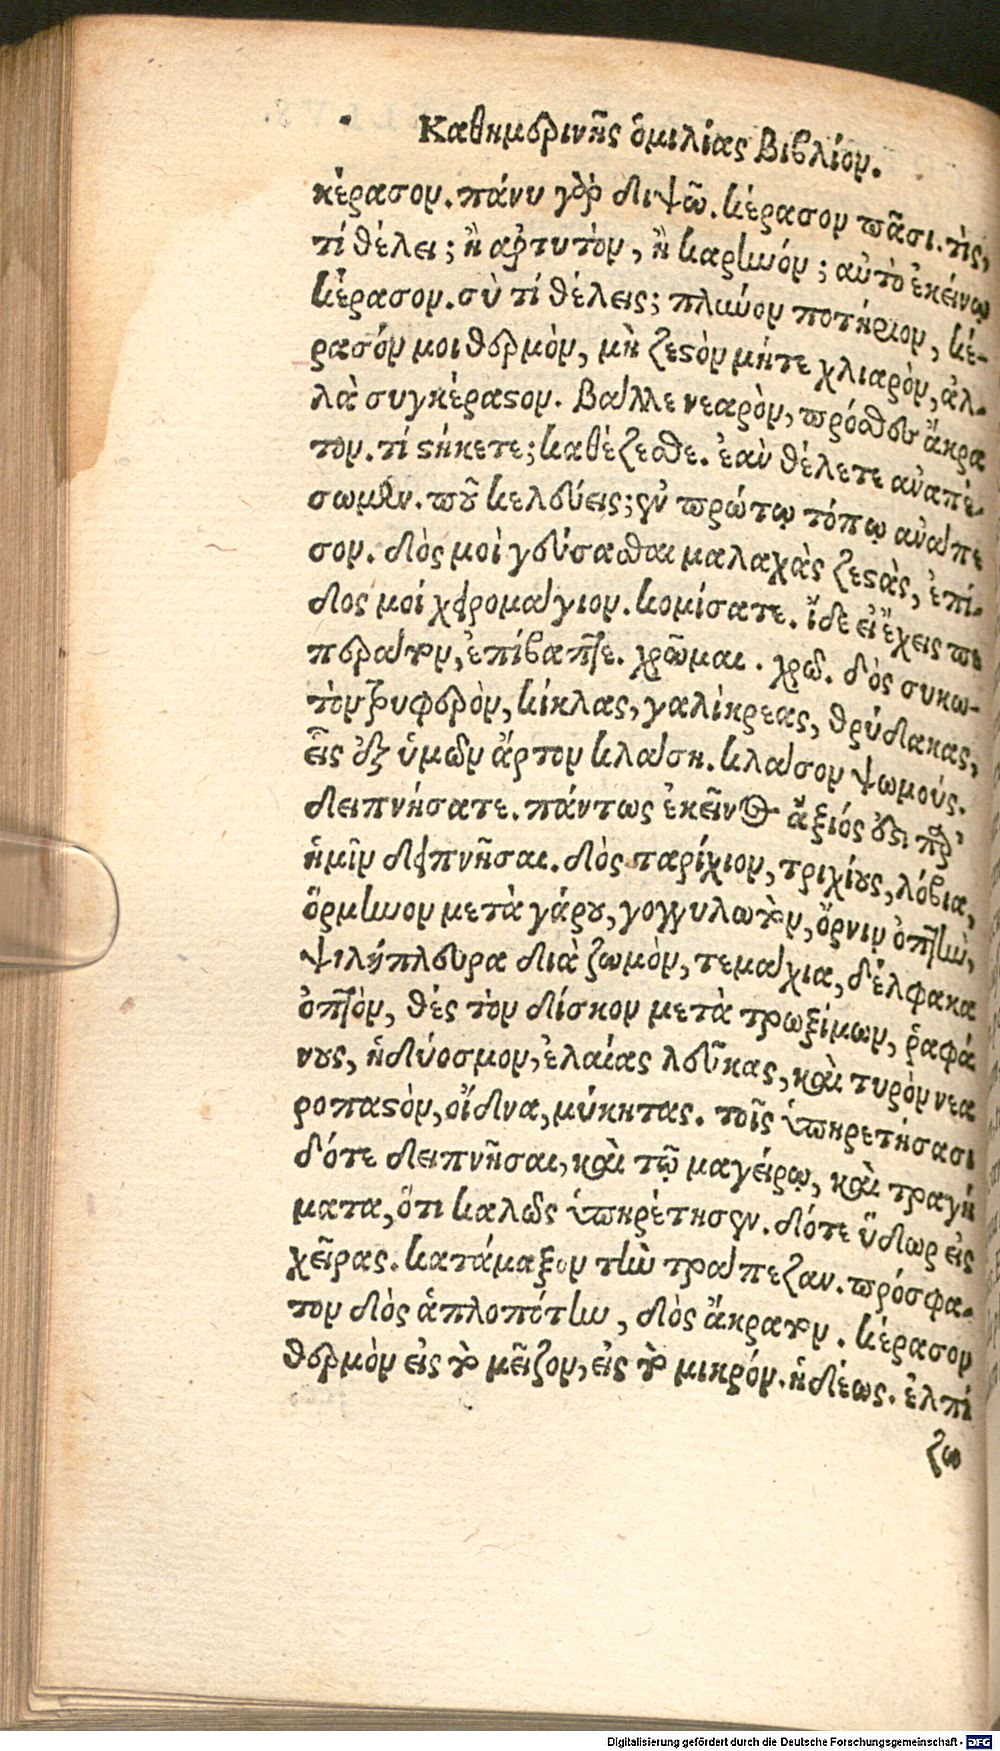 Καθημερινῆς ὁμιλίας βιβλίον.
κέρασον. πάνυ γὰρ διψῶ. κέρασον πᾶσι. τὶς,
τί θέλει; ἢ ἀρτυτὸν, ἢ καρηνόν; αὐτὸ ἐκείνῳ
κέρασον. σὺ τί θέλεις; πλῦνον ποτήριον, κέ-
ρασόν μοι θερμὸν, μὴ ζεστὸν μήτε χλιαρὸν, ἀλ-
λὰ συγκέραστον. βάλλε νεαρὸν, πρόσθες ἄκρα
τον. τί στήκετε; καθέζεσθε. ἐὰν θέλετε ἀναπέ-
σωμεν. ποῦ κελεύεις; ἐν πρώτῳ τόπῳ ἀνάπε
σον. δὸς μοὶ γεύσασθαι μαλαχὰς ζεστὰς, ἐπί-
δος μοί χειρομάγιον. κομίσατε. ἴδε εἰ ἔχεις πι
περάτον, ἐπίβαπτε. χρῶμαι. χρῶ. δὸς συκω-
τὸν τρυφερὸν, κίκλας, γαλίκρεας, θρύδακας,
εἷς ἐξ ὑμῶν ἄρτον κλάση. κλάσον ψωμούς.
δειπνήσατε. πάντως ἐκεῖνος ἄξιός ἐστι παρ'
ἡμῖν δειπνῆσαι. δὸς παρίχιον, τριχίους, λόβια,
ὅρμηνον μετὰ γάρου, γογγυλωτὸν, ὄρνιν ὀπτὴν,
ψιλήπλευρα διὰ ζωμὸν, τεμάχια, δέλφακα
ὀπτὸν, θές τὸν δίσκον μετὰ τρωξίμων, ῥαφά
νους, ἡδύοσμον, ἐλαίας λεῦκας, καὶ τυρὸν νεα
ροπαστὸν, οἴδνα, μύκητας. τοῖς ὑπηρετήσασι
δότε δειπνῆσαι, καὶ τῷ μαγείρῳ, καὶ τραγή
ματα, ὅτι καλῶς ὑπηρέτησεν. δότε ὕδωρ εἰς
χεῖρας. κατάμαξον τὴν τράπεζαν. πρόσφα-
τον δὸς ἁπλοπότην, δὸς ἄκρατον. κέρασον
θερμὸν εἰς τὸ μεῖζον, εἰς τὸ μικρόν. ἡδέως. ἐλπί
ζω
Digitalisierung gefördert durch die Deutsche Forschungsgemeinschaft - DFG